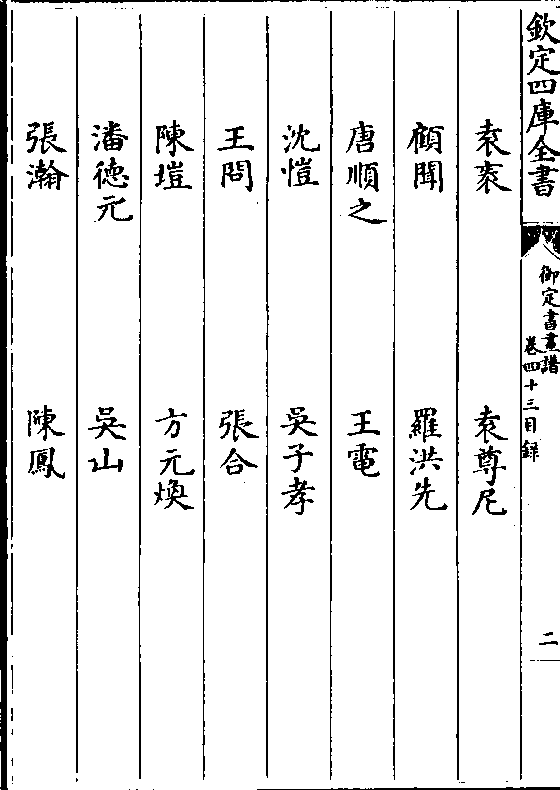 欽定四庫全書
御定書畫譜
卷四十三目錄
二
袁袠
袁尊尼
顧聞
羅洪先
唐順之
王電
沈愷
吳子孝
王問
張合
陳塏
方元煥
潘德元
吳山
張瀚
陳鳳